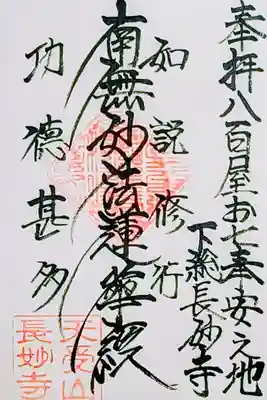 奉拝八百屋お七奉安之地
下総長妙寺
如説修行
南無妙法蓮華経
功徳甚多
天受山
長妙寺